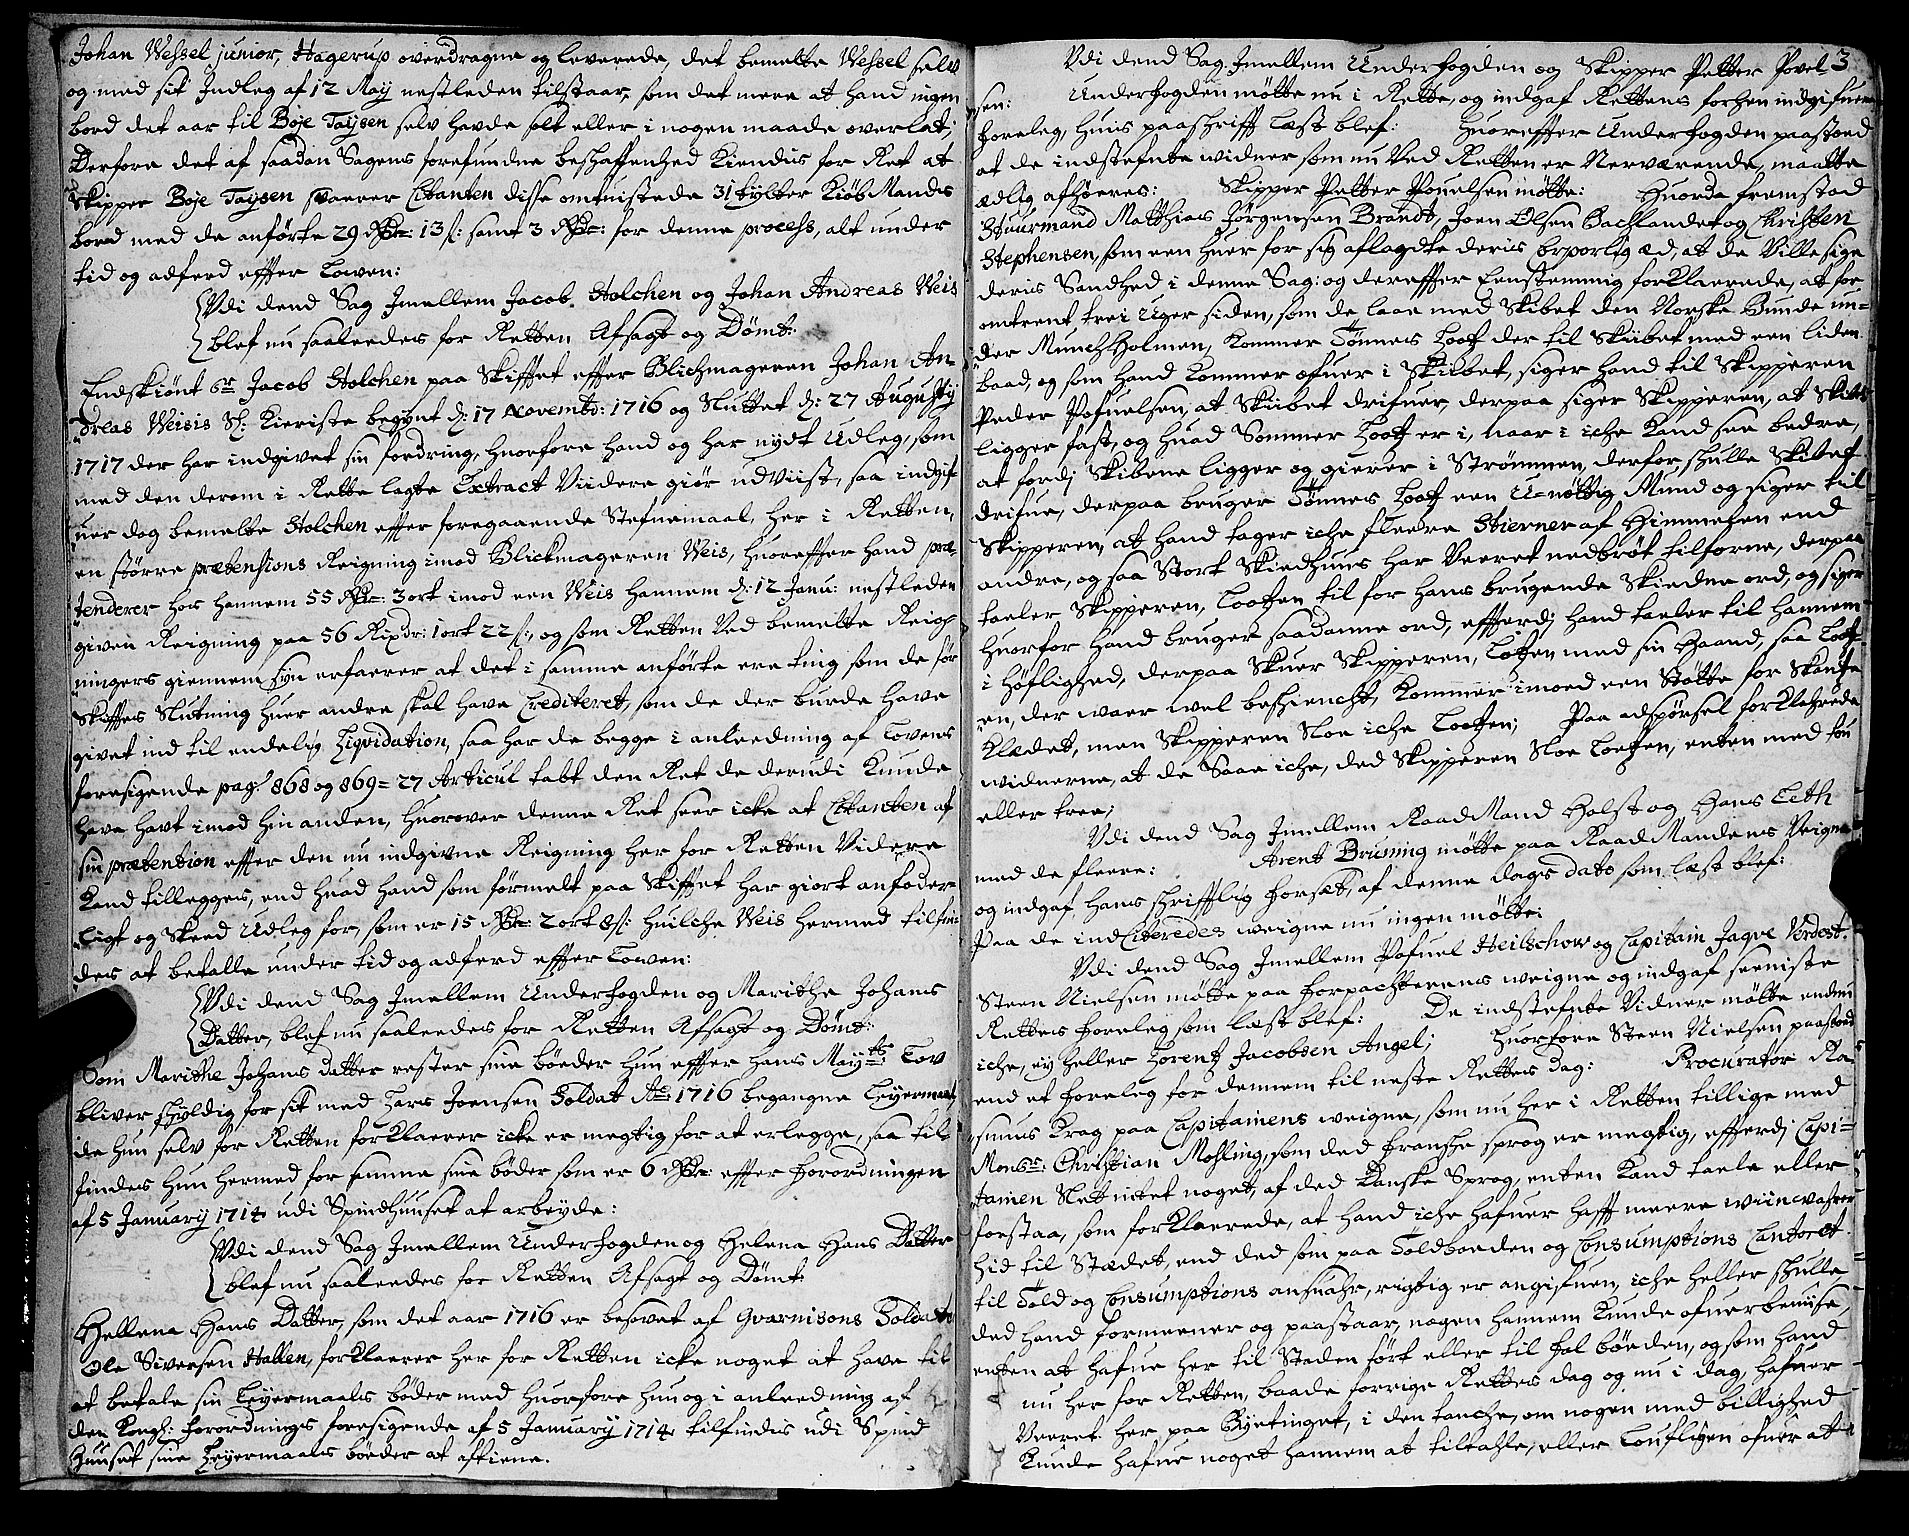 Johan Wessel junior, Hagerup overdragne og leverede, det bemelte Wessel selv
og med sit Indleg af 12 May nestleden tilstaar, som det mere at hand ingen
bord det aar til Böje Taysen selv havde solt eller i nogen maade overlat;
Derfore det af saadan Sagens forefundne beskaffenhed Kiendis for Ret at
Skipper Böje Taysen svarer Citanten disse omtvistede 31 tylter KiöbMands
bord med de anförte 29 Rdr: 13 s: samt 3 Rdr: for denne process, alt under
tid og adferd effter Lowen:
Vdi dend Sag Imellem Jacob Stolchen og Johan Andreas Weis
blef nu saaleedes for Retten Afsagt og Dömt:
Endskiönt Sr Jacob Stolchen paa Skifftet effter Blichmageren Johan An-
dreas Weisis Sl: Kieriste begynt d: 17 Novembr: 1716 og Sluttet d: 27 Augustij
1717 der har indgivet sin fordring, huorfore hand og har nydt Udleg, som
med den derom i Rette lagte Extract Viidere giör udviist, saa indgif
uer dog bemelte Stolchen effter foregaaende Stefnemaal, her i Retten,
en större prætensions Reigning imod Blickmageren Weis, huoreffter hand præ-
tenderer hos hannem 55 Rdr: 3 ort imod een Weis hannem d: 12 Janu: nestleden
given Reigning paa 56 Rixdr: 1 ort 22 s:, og som Retten Ved bemelte Reig-
ningers giennem syn erfarer at det i samme anförte ere ting som de för
Skifftes Slutning huer andre skal have Crediteret, som de der burde have
givet ind til endelig Liqvidation, saa har de begge i anleedning af Lovens
foresigende pag: 868 og 869 = 27 Articul tabt den Ret de derudi kunde
have havt imod hin anden, huorover denne Ret seer icke at Citanten af
sin prætention effter den nu indgivne Reigning her for Retten Videre
kand tillegges, end huad hand som förmelt paa Skifftet har giort anfoder-
ligt og Skeed Udleg for, som er 15 Rdr: 2 ort 8 s: huilche Weis hermed tilfin-
des at betalle under tid og adferd effter Lowen:
Vdi dend Sag Imellem Underfogden og Marithe Johans
Datter, blef nu saaleedes for Retten Afsagt og Dömt:
Som Marithe Johans datter rester sine böeder hun effter Hans Mayts Lov
bliver skyldig for sit med Lars Joensen Soldat Ao: 1716 begangne Leyermaal
ide hun selv for Retten forklaerer icke er megtig for at erlegge, saa til
findes hun hermed for samme sine böder som er 6 Rdr: effter Forordningen
af 5 January 1714 udi Spindhuuset at arbeyde:
Vdi dend Sag Imellem Underfogden og Helena Hans Datter
blef nu saaleedes for Retten Afsagt og Dömt:
Hellena Hans Datter, som det aar 1716 er besovet af Gvarnisons Soldat
Ole Siversen Hallen, forklaerer her for Retten icke noget at have til
at betale sin Leyermaals böder med huorfore hun og i anleedning af
den Kongl: forordnings foresigende af 5 January 1714 tilfindes udi Spind
huuset sine Leyermaals böeder at aftiene.
3
Vdi dend Sag Imellem Underfogden og Skipper Petter Povel
sen: Underfogden mötte nu i Rette, og indgaf Rettens forhen indgifuen
foreleg, huis paaskrifft læst blef: Huoreffter Underfogden paastoed
at de indstefnte widner som nu Ved Retten er Nerværende, maatte
ædlig afhöeres: Skipper Petter Pouelsen mötte: Huorda fremstod
Stuurmand Matthias Jörgensen Brandt, Joen Olsen Bachlandet og Christen
Stephensen, som een huer for sig aflagdte deris Corporlig æd, at de Ville sige
deris Sandhed i denne Sag; og dereffter Eenstemmig forklaerede, at for
omtrent trei Uger siden, som de laae med Skibet den Norske Bunde un-
der Munchholmen, kommer Tönnes Loots der til Skibet med een liden
baad, og som hand kommer ofuer i Skibet, siger hand til Skipperen
Peder Pofuelsen, at Skibet drifuer, derpaa siger Skipperen, at Skibet
ligger fast, og huad Sommer Loots er i, naar i iche kand see bedre,
at fordj Skibene ligger og gierer i Strömmen, derfor skulle Skibet
drifue, derpaa bruger Tönnes Loots een U-nöttig Mund og siger til
Skipperen, at hand tager iche fleere Stierner af Himmelen end
andre, og saa Stort Skiedhuus har Veeret nedbröt tilforne, derpaa
taeler Skipperen, Lootsen til for hans brugende Skiedne ord, og siger
huorfor hand bruger saadanne ord, effterdj hand taeler til hannem
i höflighed, derpaa Skuer Skipperen, Lotsen med sin Haand, saa Loots-
en, der waer wel beskiencht, kommer imoed een Stötte for Skantze
klædet, men Skipperen Sloe iche Lootsen; Paa adspörsel forklahrede
widnerne, at de Saae iche, ded Skipperen Sloe Lootsen, enten med tou
eller tree;
Vdi dend Sag Imellem RaadMand Holst og Hans Leth
med de fleere: Arent Bruning mötte paa RaadMandens Veigne
og indgaf hans skrifftlig forsæt, af denne dags dato som læst blef:
Paa de indCiteredes weigne nu ingen mötte:
Vdi dend Sag Imellem Pofuel Heilschow og Capitain Jaqve Verdest.
Steen Nielsen mötte paa Forpachterens weigne og indgaf seeniste
Rettes foreleg som læst blef: De indstefnte Vidner mötte endnu
iche, ey heller Lorentz Jacobsen Angel; Huorfore Steen Nielsen paastod
end et foreleg for dennem til neste Rettes Dag: Procurator Ra-
smus Krag paa Capitainens weigne, som nu her i Retten tillige med
Monsr: Christian Mohling, som ded franske sprog er megtig, effterdj Capi-
tainen Slet intet noget, af ded Danske Sprog, enten kand taele eller
forstaa, som forklaerede, at hand iche hafuer hafft meere wiin wahrer
hid til Stædet, end ded som paa Toldboeden og Consumptions Contoret
til Told og Consumptions ansuahr, rigtig er angifuen, iche heller skulle
ded hand formeener og paastaar, nogen hannem kunde ofuerbeviise,
enten at hafue her til Staden fört eller til fal böeden, og som hand
nu her for Retten, baade forrige Rettes dag og nu i dag, hafuer
Veeret her paa Byetinget, i den tanche, om nogen med billighed
kunde hafue noget hannem at tiltahle, eller Loufligen ofuer at